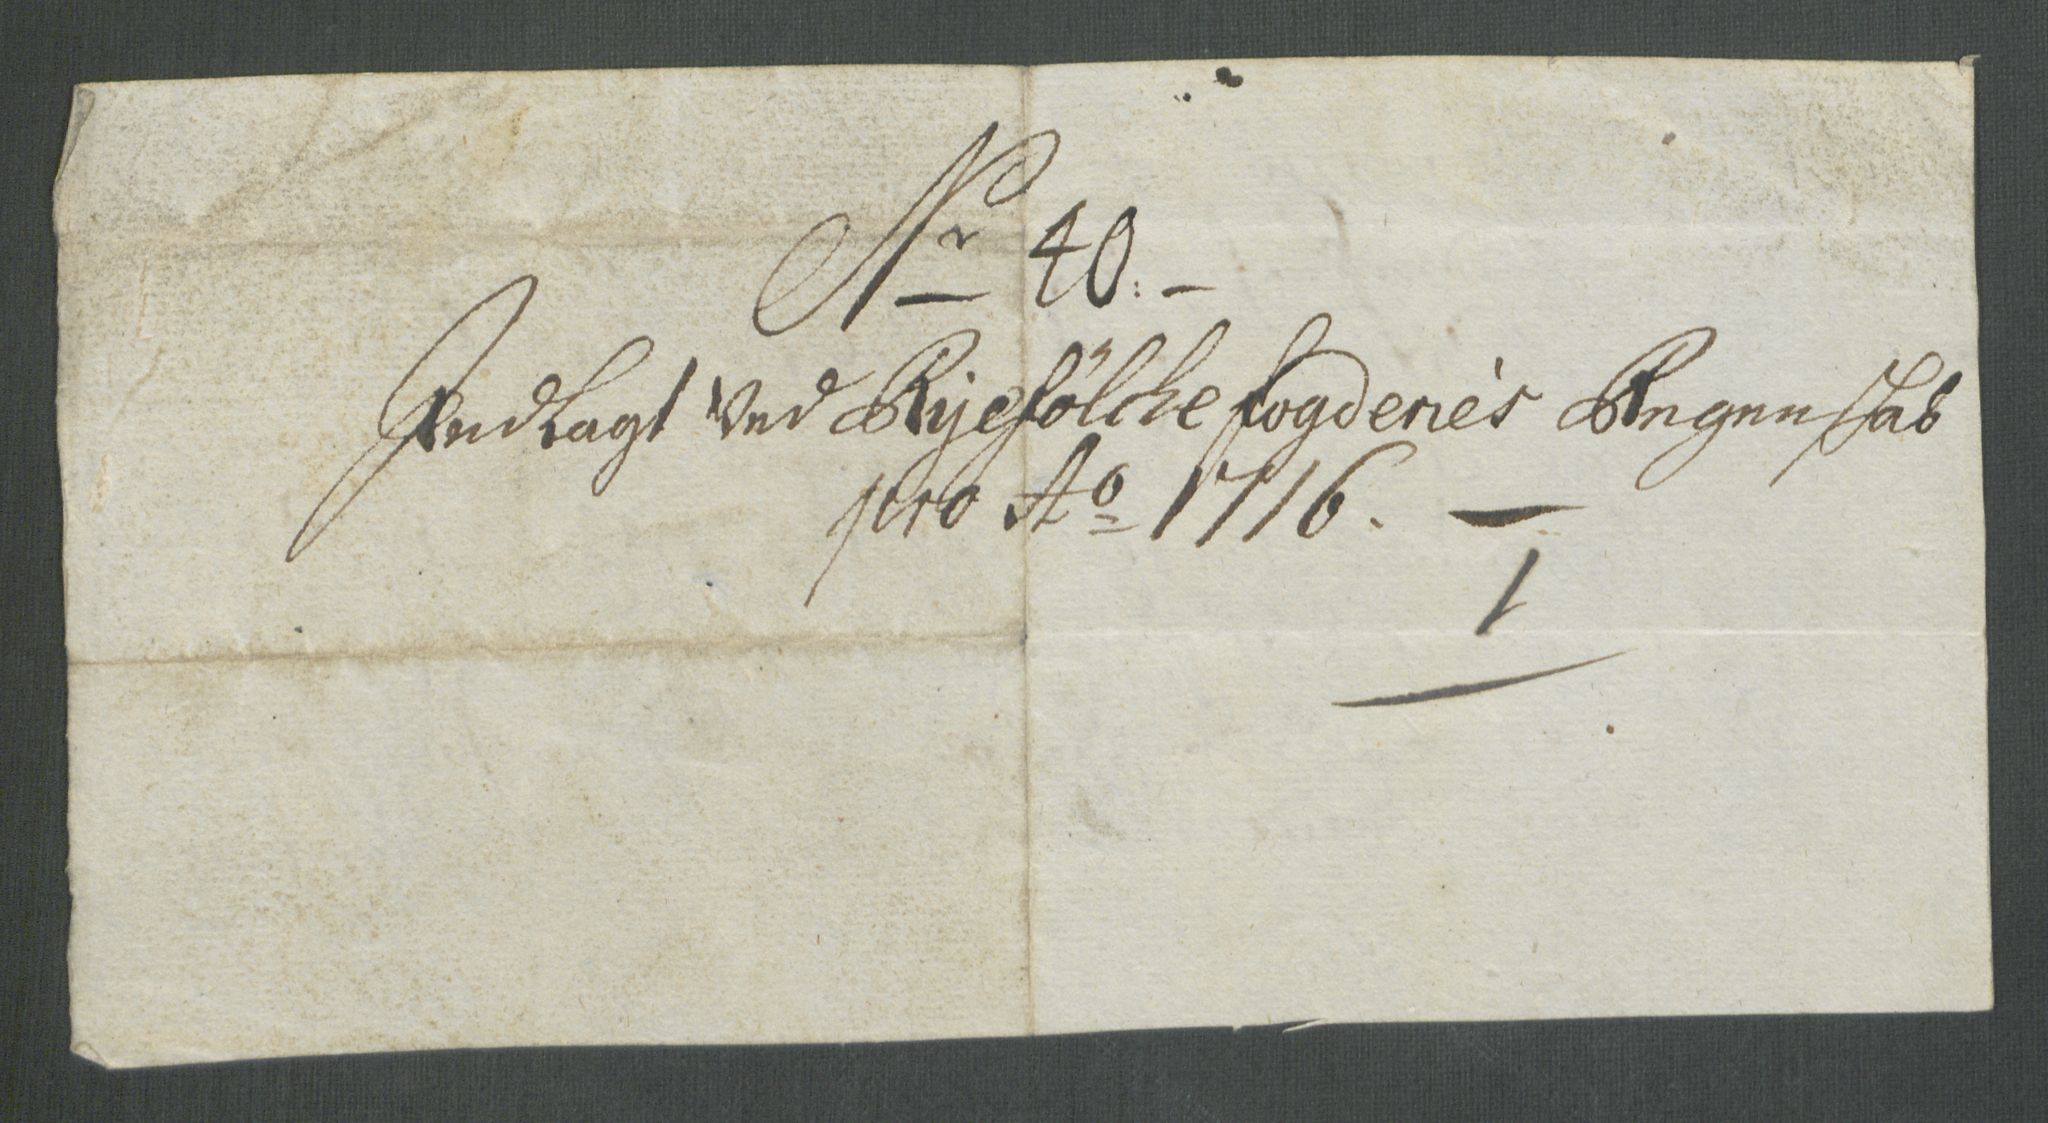 Nr 40. -
Indlagt Ved Ryefölche fogderiés Regenskab
pro Ao 1716. -
1